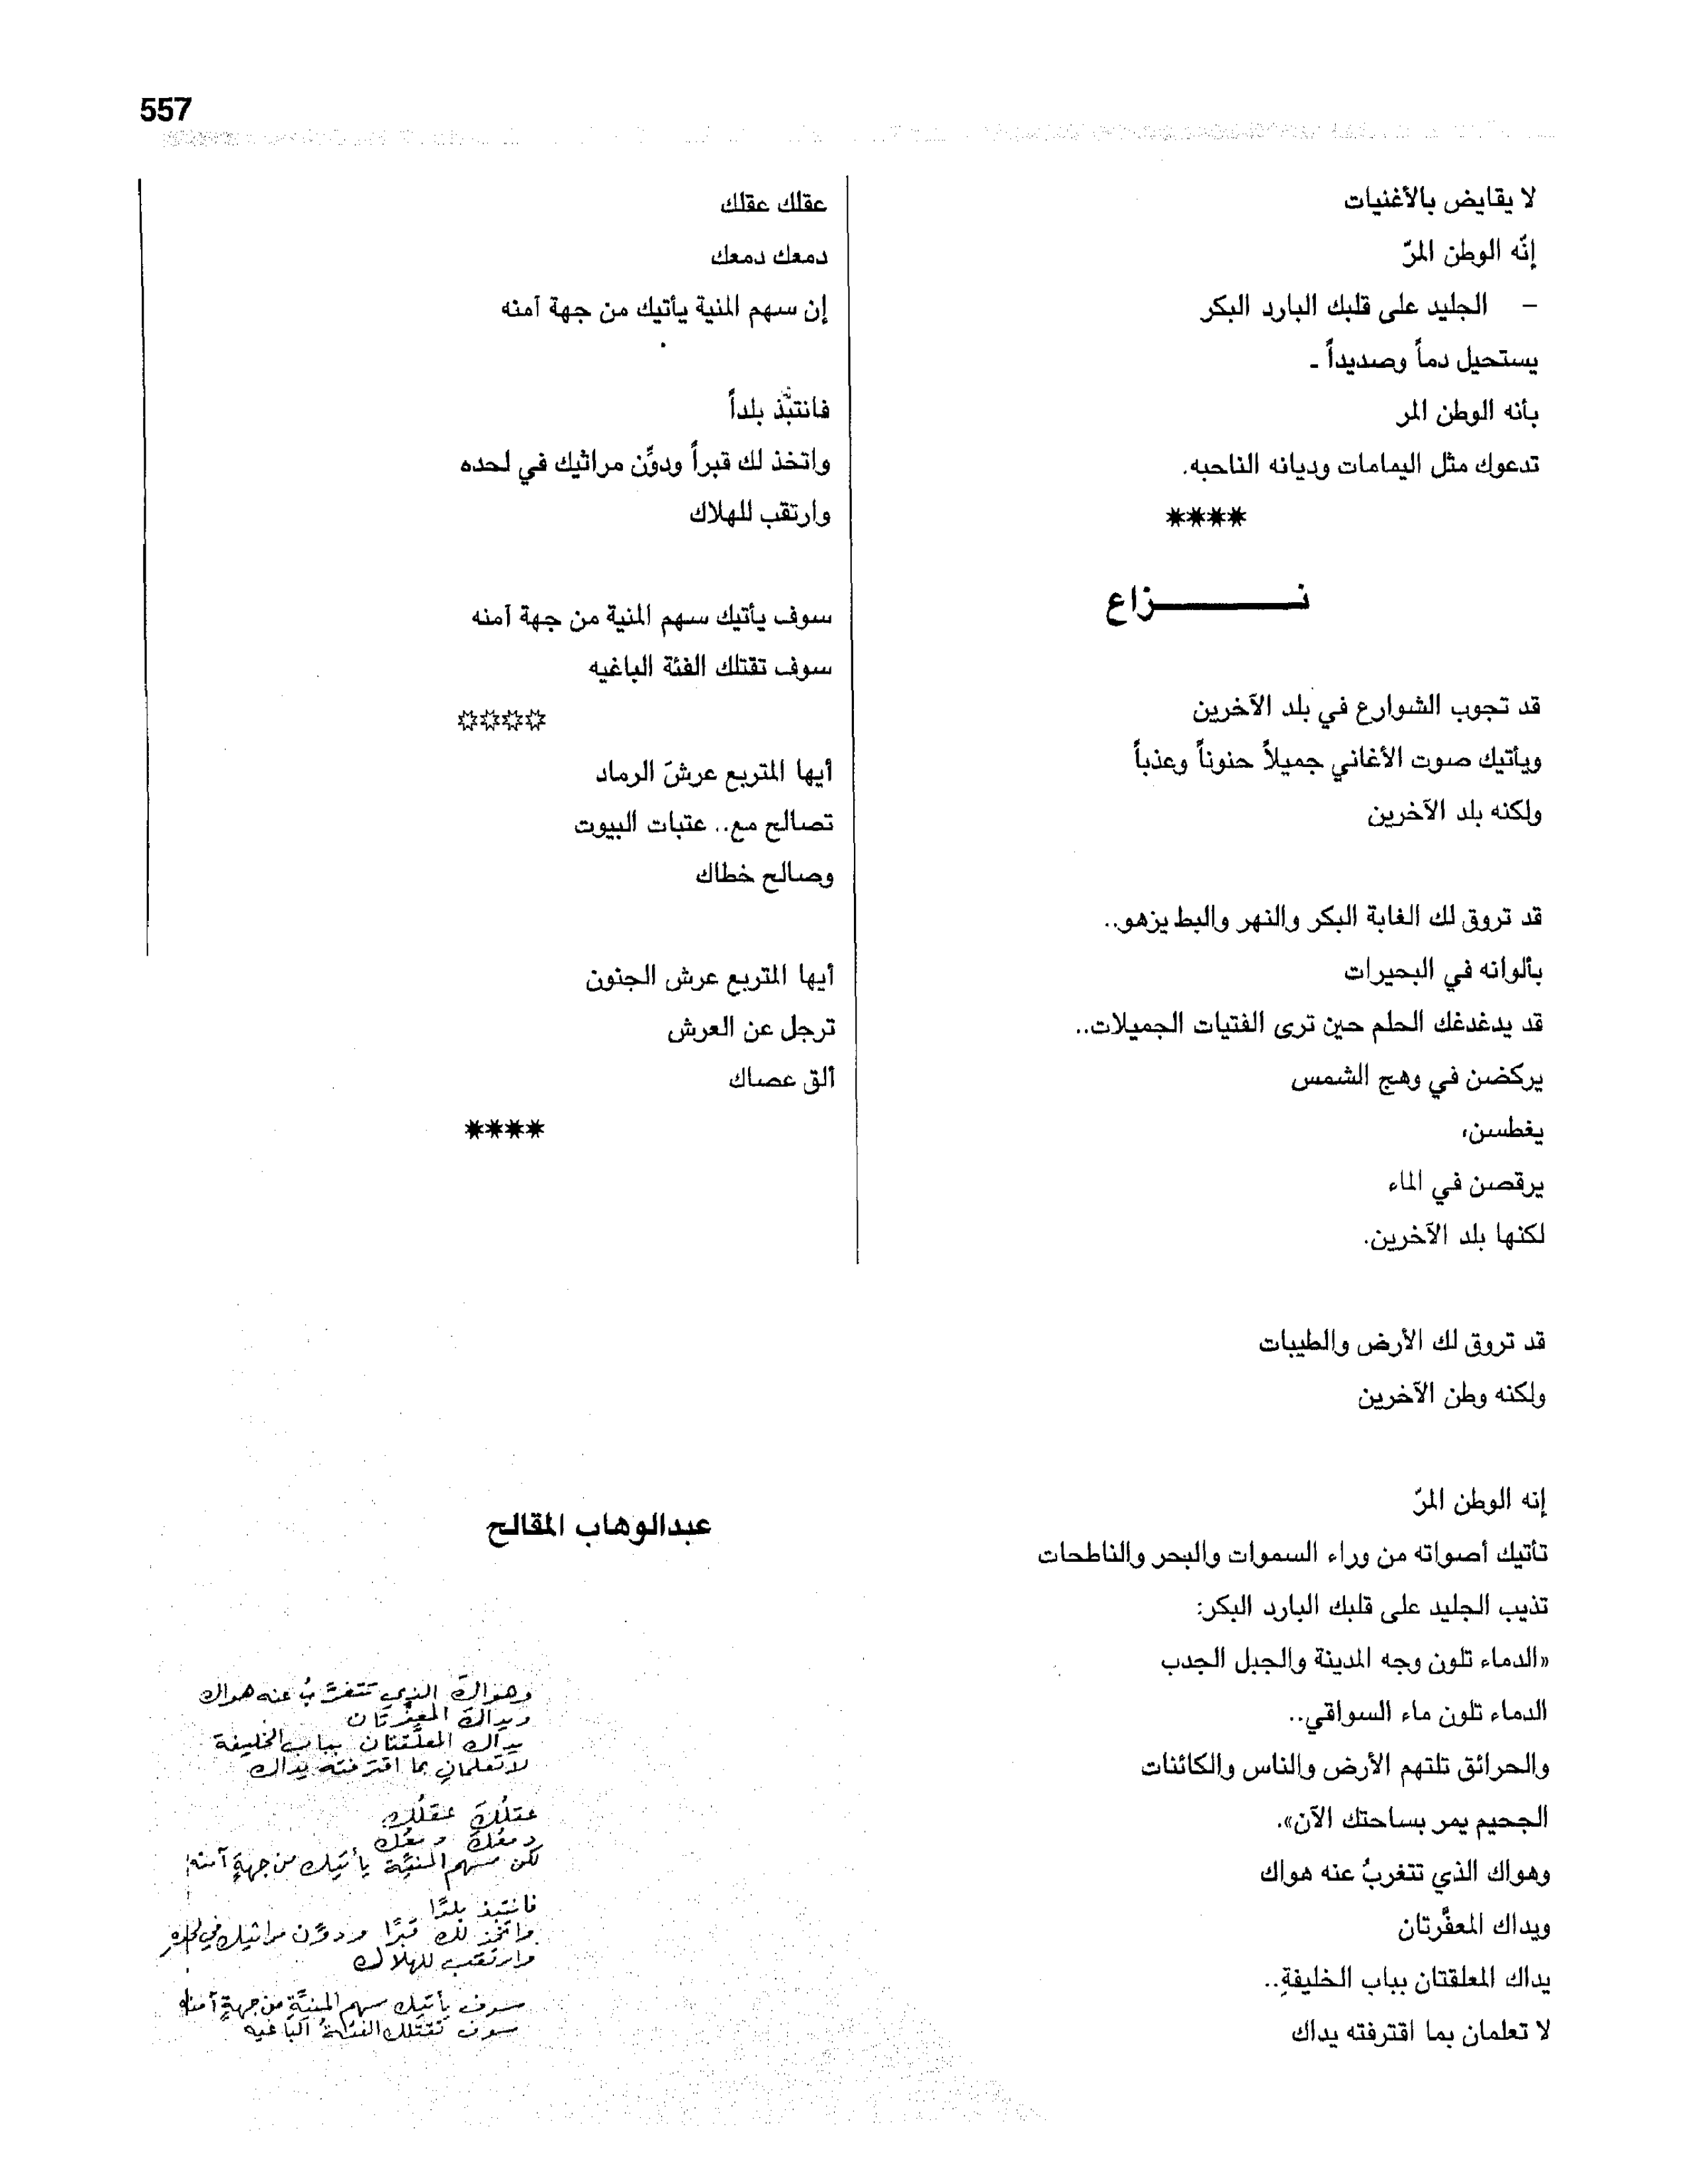 557
لا يقايض بالأغنيات
إنّه الوطن المرّ
– الجليد على قلبك البارد البكر
يستحيل دماً وصديداً ـ
بأنه الوطن المر
تدعوك مثل اليمامات وديانه الناحبه.
****
نـــــزاع
قد تجوب الشوارع في بلد الآخرين
ويأتيك صوت الأغاني جميلاً حنوناً وعذباً
ولكنه بلد الآخرين
قد تروق لك الغابة البكر والنهر والبط يزهو..
بألوانه في البحيرات
قد يدغدغك الحلم حين ترى الفتيات الجميلات..
يركضن في وهج الشمس
يغطسن،
يرقصن في الماء
لكنها بلد الآخرين.
قد تروق لك الأرض والطيبات
ولكنه وطن الآخرين
إنه الوطن المرّ
تأتيك أصواته من وراء السموات والبحر والناطحات
تذيب الجليد على قلبك البارد البكر:
«الدماء تلون وجه المدينة والجبل الجدب
الدماء تلون ماء السواقي..
والحرائق تلتهم الأرض والناس والكائنات
الجحيم يمر بساحتك الآن».
وهواك الذي تتغربُ عنه هواك
ويداك المعفَّرتان
يداك المعلقتان بباب الخليفةِ..
لا تعلمان بما اقترفته يداك
عقلك عقلك
دمعك دمعك
إن سهم المنية يأتيك من جهة آمنه
فانتبَّذ بلداً
واتخذ لك قبراً ودوِّن مراثيك في لحده
وارتقب للهلاك
سوف يأتيك سهم المنية من جهة آمنه
سوف تقتلك الفئة الباغيه
☼☼☼☼
أيها المتربع عرشَ الرماد
تصالح مع.. عتبات البيوت
وصالح خطاك
أيها المتربع عرش الجنون
ترجل عن العرش
ألق عصاك
****
عبدالوهاب المقالح
وهواكَ الذي تتغرَّبُ عنه هواك
ويداكَ المعفَّرتان
يداك المعلَّقتان بباب الخليفة
لا تعلمانِ بما اقترفته يداك
عقلُكَ عقلُك
دمعُكَ دمعُك
لكن سهم المنيَّة يأتيك من جهةٍ آمنه
فانتبذ بلدًا
واتخذ لك قبرًا ودوِّن مراثيك في لحده
وارتقب للهلاك
سوف يأتيك سهم المنيَّةِ من جهةٍ آمنه
سوف تقتلك الفئةُ الباغيه